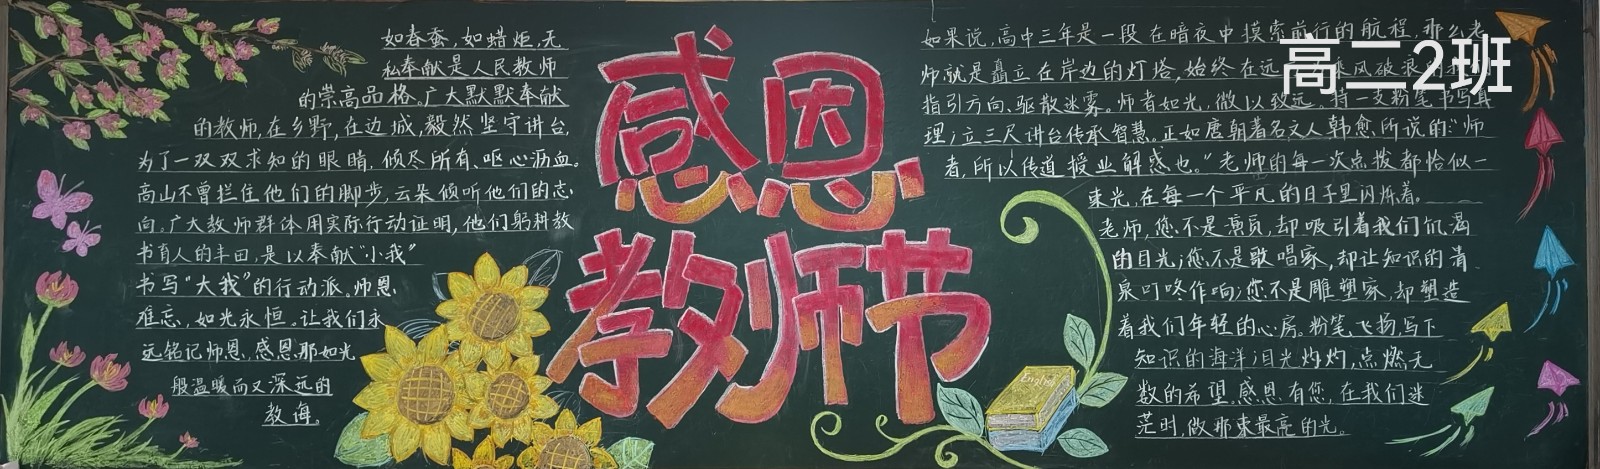 如春蚕,如蜡炬,无
私奉献是人民教师
的崇高品格。广大默默奉献
的教师,在乡野,在边城,毅然坚守讲台,
为了一双双求知的眼睛,倾尽所有、呕心沥血。
高山不曾拦住他们的脚步,云朵倾听他们的志
向。广大教师群体用实际行动证明,他们躬耕教
书育人的丰田,是以奉献“小我”
书写“大我”的行动派。师恩
难忘,如光永恒。让我们永
远铭记师恩,感恩那如光
般温暖而又深远的
教诲。
感恩
教师节
English
如果说,高中三年是一段在暗夜中摸索前行的航程,那么老
师就是矗立在岸边的灯塔,始终在远
乘风破浪
指引方向、驱散迷雾。师者如光,微以致远。持一支粉笔书写真
理;立三尺讲台传承智慧。正如唐朝著名文人韩愈所说的:“师
者,所以传道授业解惑也。”老师的每一次点拨都恰似一
束光,在每一个平凡的日子里闪烁着。
老师,您不是演员,却吸引着我们饥渴
的目光;您不是歌唱家,却让知识的清
泉叮咚作响;您不是雕塑家,却塑造
着我们年轻的心房。粉笔飞扬,写下
知识的海洋;目光灼灼,点燃无
数的希望。感恩有您,在我们迷
茫时,做那束最亮的光。
高二2班